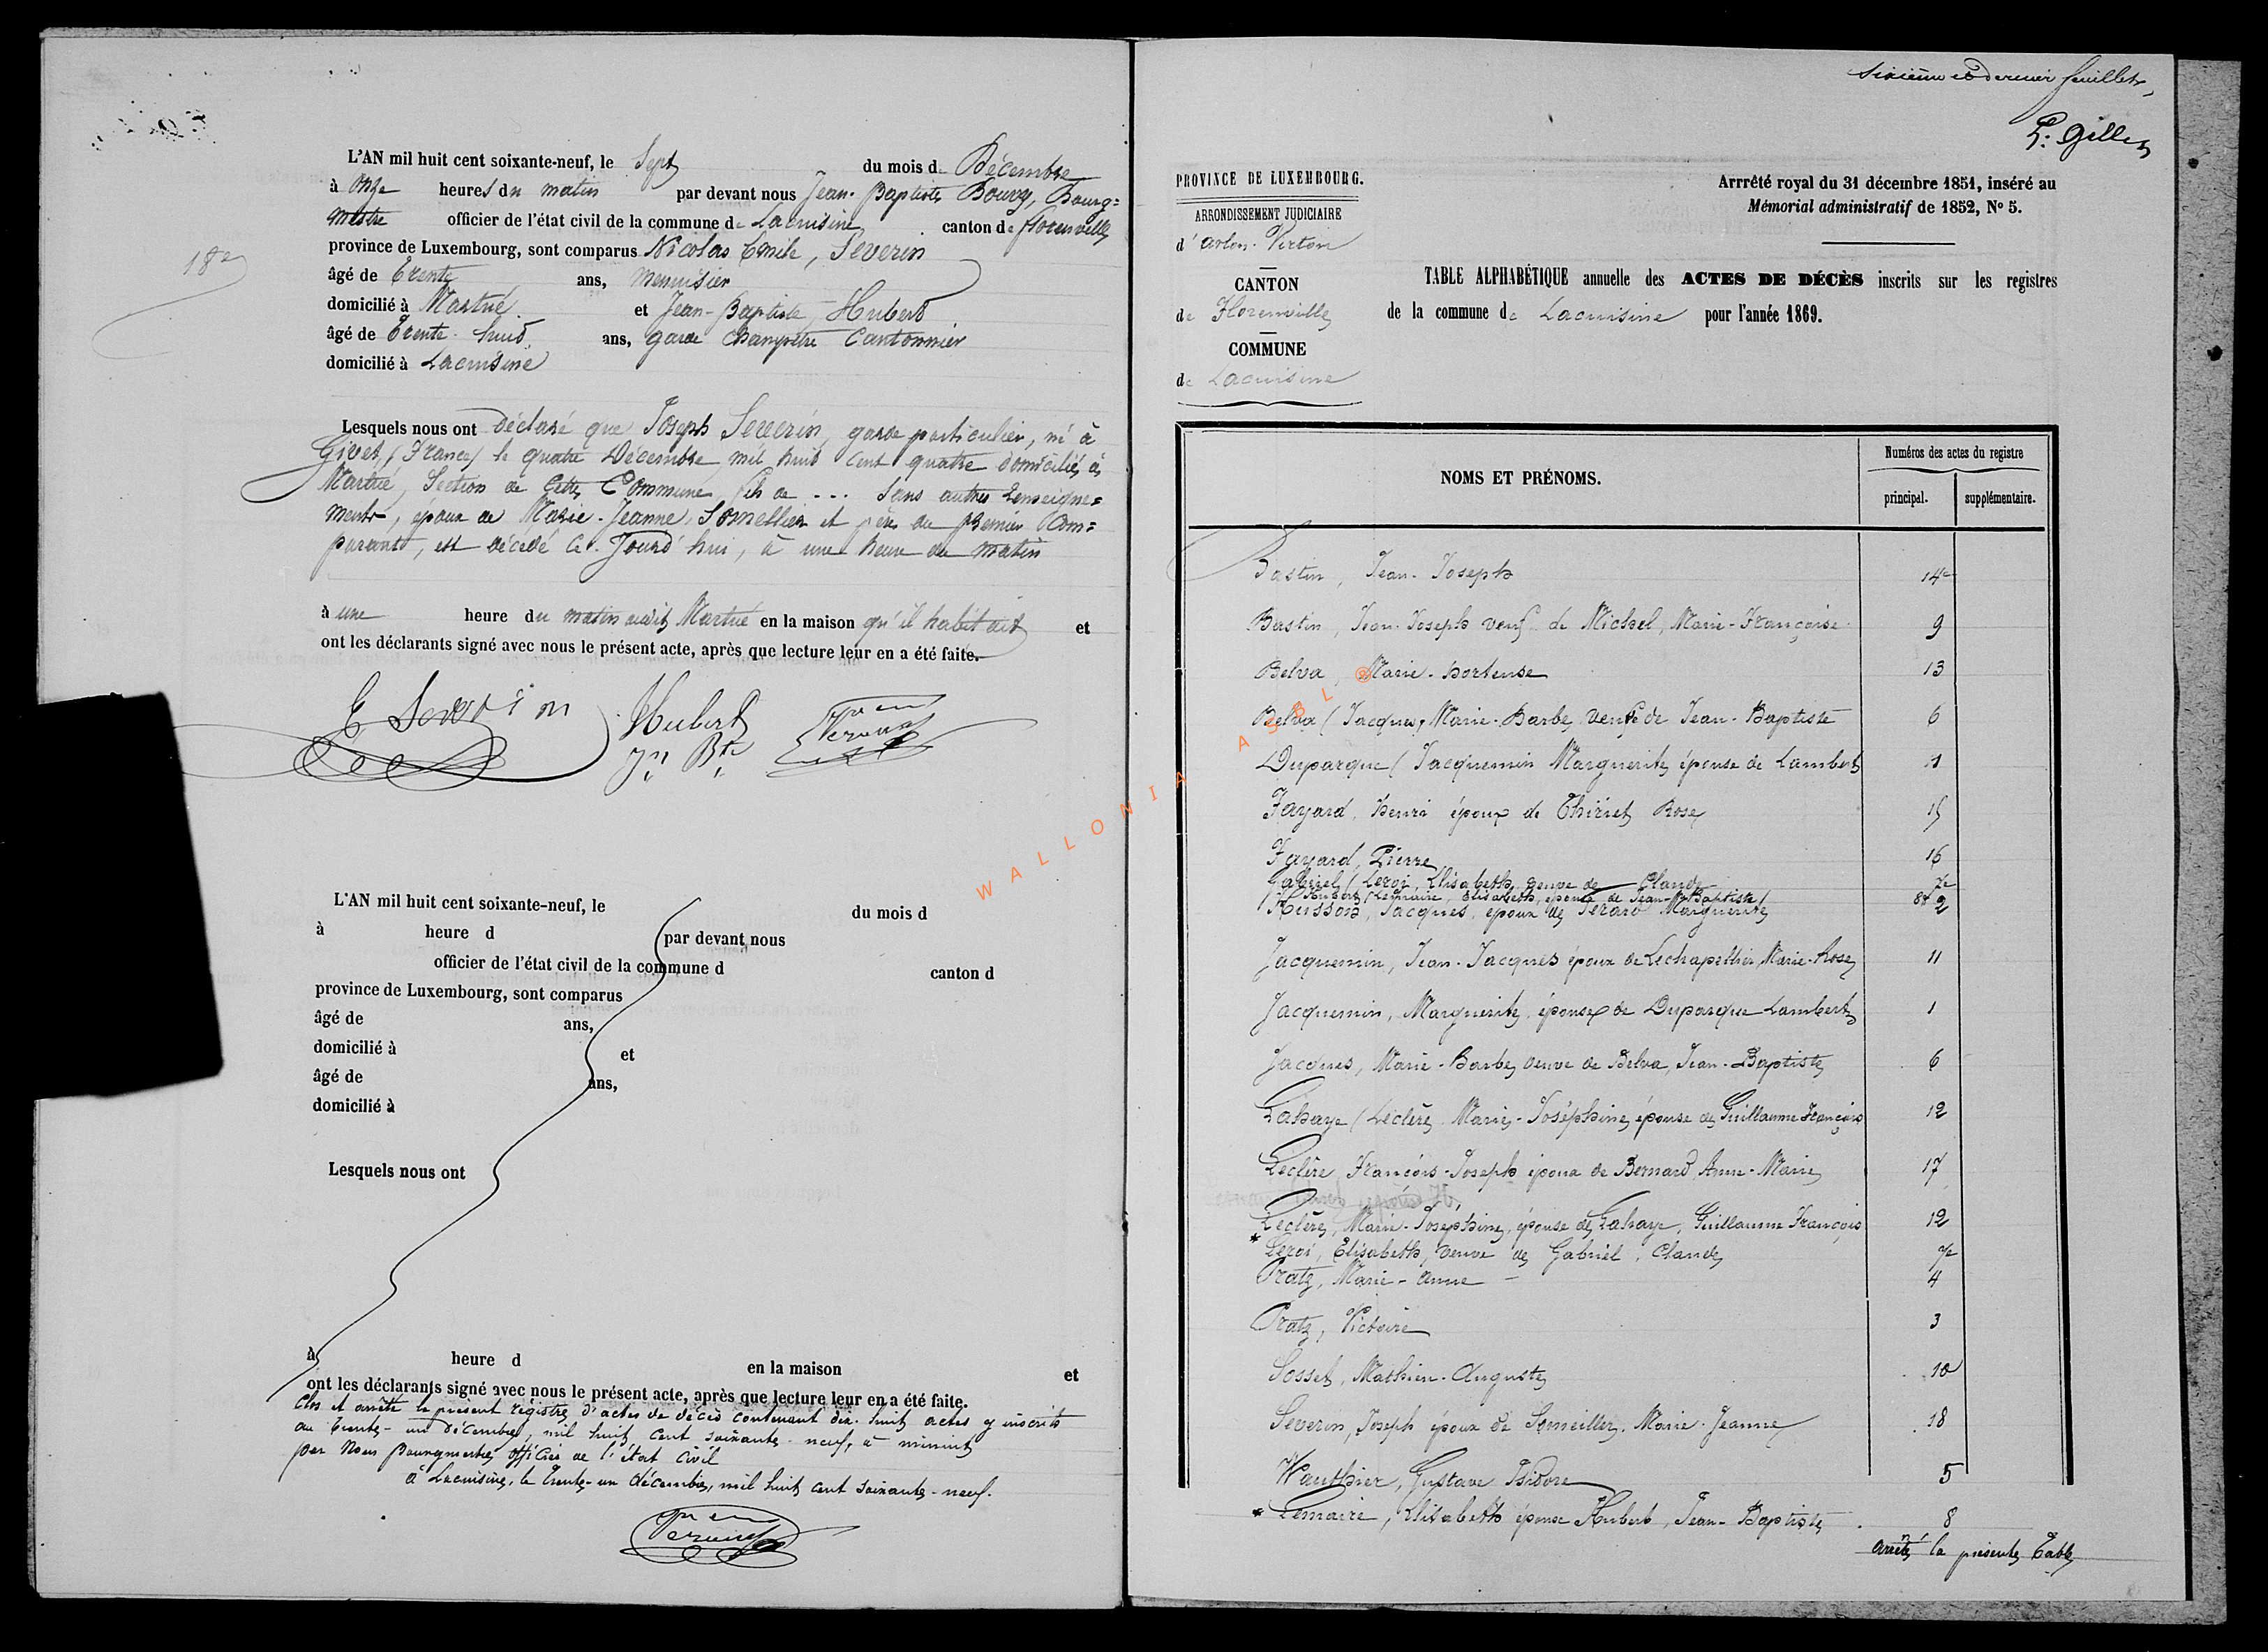 L'AN mil huit cent soixante-neuf, le Sept du mois de Décembre
à onze heures du matin par devant nous Jean-Baptiste Bourg, Bourg=
mestre officier de l'état civil de la commune de Lacuisine canton de Florenville
province de Luxembourg, sont comparus Nicolas Emile, Severin
18e
âgé de trente ans, menuisier
domicilié à Martué et Jean-Baptiste Hubert
âgé de trente-huit ans, garde champêtre Cantonnier
domicilié à Lacuisine
Lesquels nous ont déclaré que Joseph Severin, garde particulier, né à
Givet (France) le quatre Décembre mil huit cent quatre domicilié à
Martué, Section de cette Commune, fils de ... sans autres renseigne=
ments, époux de Marie-Jeanne, Someillier et père du premier Com=
parant, est décédé ce-jourd'hui, à une heure du matin
à une heure du matin audit Martué en la maison qu'il habitait et
ont les déclarants signé avec nous le présent acte, après que lecture leur en a été faite.
E Severin Hubert
Jn Bte
L'AN mil huit cent soixante-neuf, le du mois d
à heure d par devant nous
officier de l'état civil de la commune d canton d
province de Luxembourg, sont comparus
âgé de ans,
domicilié à et
âgé de ans,
domicilié à
Lesquels nous ont
à heure d en la maison et
ont les déclarants signé avec nous le présent acte, après que lecture leur en a été faite.
Clos et arrêté le présent registre d'actes de décès contenant dix-huit actes y inscrits
au trente-un décembre, mil huit cent soixante-neuf, à minuit
par Nous Bourgmestre, officier de l'état civil
à Lacuisine, le trente-un décembre, mil huit cent soixante-neuf.
WALLONIA ASBL @
Sixième et dernier feuillet,
P. Gilles
PROVINCE DE LUXEMBOURG.
ARRONDISSEMENT JUDICIAIRE
d'Arlon-Virton
CANTON
de Florenville
COMMUNE
de Lacuisine
Arrrêté royal du 31 décembre 1851, inséré au
Mémorial administratif de 1852, No 5.
TABLE ALPHABÉTIQUE annuelle des ACTES DE DÉCÈS inscrits sur les registres
de la commune de Lacuisine pour l'année 1869.
NOMS ET PRÉNOMS. Numéros des actes du registre
principal. supplémentaire.
Bastin, Jean-Joseph 14
Bastin, Jean-Joseph veuf de Michel, Marie-Françoise 9
Belva, Marie-hortense 13
Belva (Jacques, Marie-Barbe, veuve de Jean-Baptiste 6
Duparque (Jacquemin Marguerite, épouse de Lambert 1
Fayard, henri époux de Thiriet Rose 15
Fayard, Pierre 16
Gabriel (Leroi, Elisabeth, veuve de Claude 7
Hubert (Lemaire, Elisabeth, épouse de Jean-Baptiste) 8
Husson, Jacques, époux de Marguerite 2
Jacquemin, Jean-Jacques époux de Lechapellier, Marie-Rose 11
Jacquemin, Marguerite, épouse de Duparque Lambert 1
Jacques, Marie-Barbe, veuve de Belva, Jean-Baptiste 6
Lahaye (Leclère, Marie-Joséphine, épouse de Guillaume François 12
Leclère François-Joseph époux de Bernard Anne-Marie 17
Leclère, Marie-Joséphine, épouse de Lahaye, Guillaume François 12
* Leroi, Elisabeth, veuve de Gabriel, Claude 7
Pratz, Marie-Anne 4
Pratz, Victoire 3
Sosset, Mathieu-Auguste 10
Severin, Joseph époux de Someillier, Marie-Jeanne 18
Wauthier, Gustave Isidore 5
* Lemaire, Elisabeth épouse Hubert, Jean-Baptiste 8
arrêté la présente Table